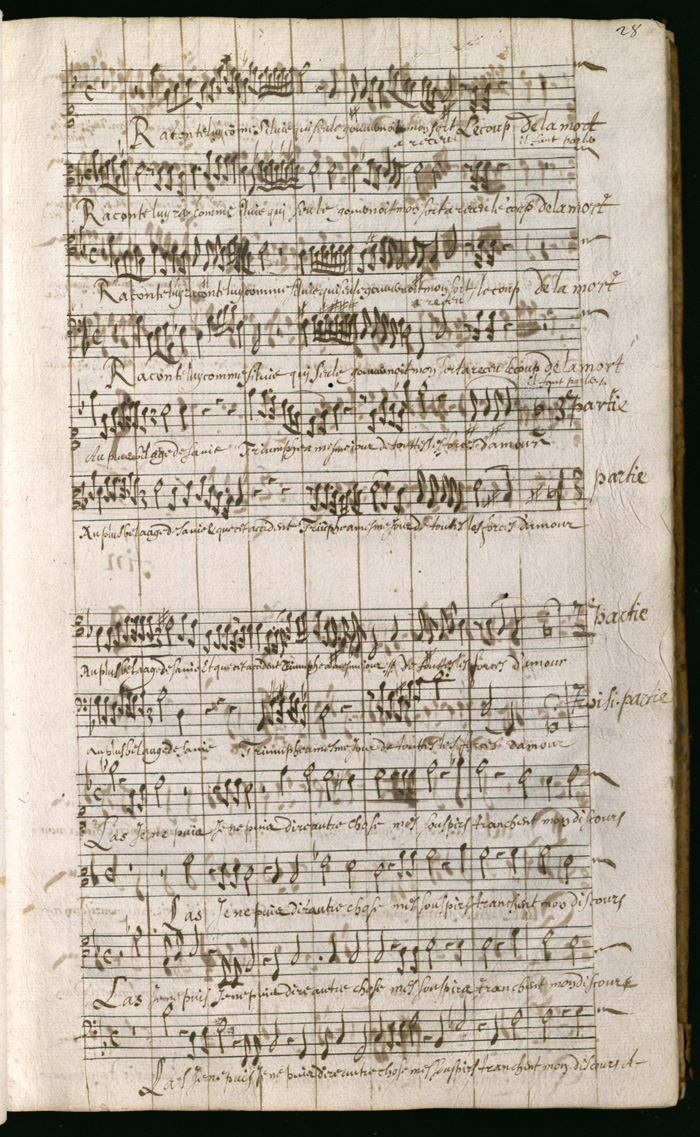 28
Raconte luy comme Siluie qui seule gouuernoit mon sort Le coup de la mort
a receu il faut parler
Raconte luy ra comme siluie qui seule gouuernoit mon sort a receu le coup de la mort
Raconte luy raconte luy comme siluie qui seule gouuernoit mon sort le coup de la mort
a receu
Raconte luy comme siluie qui seule gouuernoit mon sort a receu le coup de la mort
il faut parler
partie
Au plus bel aage de sa vie Triumphe a mesme jour de touttes les forces d'amour
partie
Au plus bel aage de sa vie & que cet accident Triumphe a mesme jour de touttes les forces d'amour
partie
Au plus bel aage de sa vie Et que cet accident Triumphe a mesme jour de touttes les forces d'amour
partie
au plus bel aage de sa vie Triumphe a mesme jour de touttes les forces d'amour
Las Je ne puis Je ne puis dire autre chose mes souspirs tranchent mon discours
Las Je ne puis dire autre chose mes souspirs tranchent mon discours
Las Je ne puis Je ne puis dire autre chose mes souspirs tranchent mon discours
Las Je ne puis Je ne puis dire autre chose mes souspirs tranchent mon discours